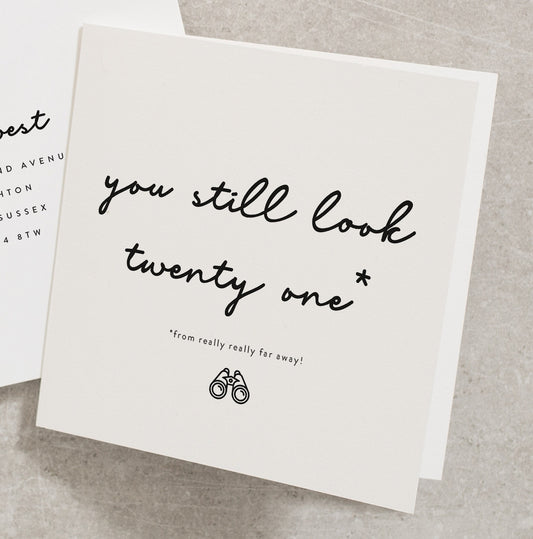 you still look
twenty one*
*from really really far away!
SUSSEX
4 8TW